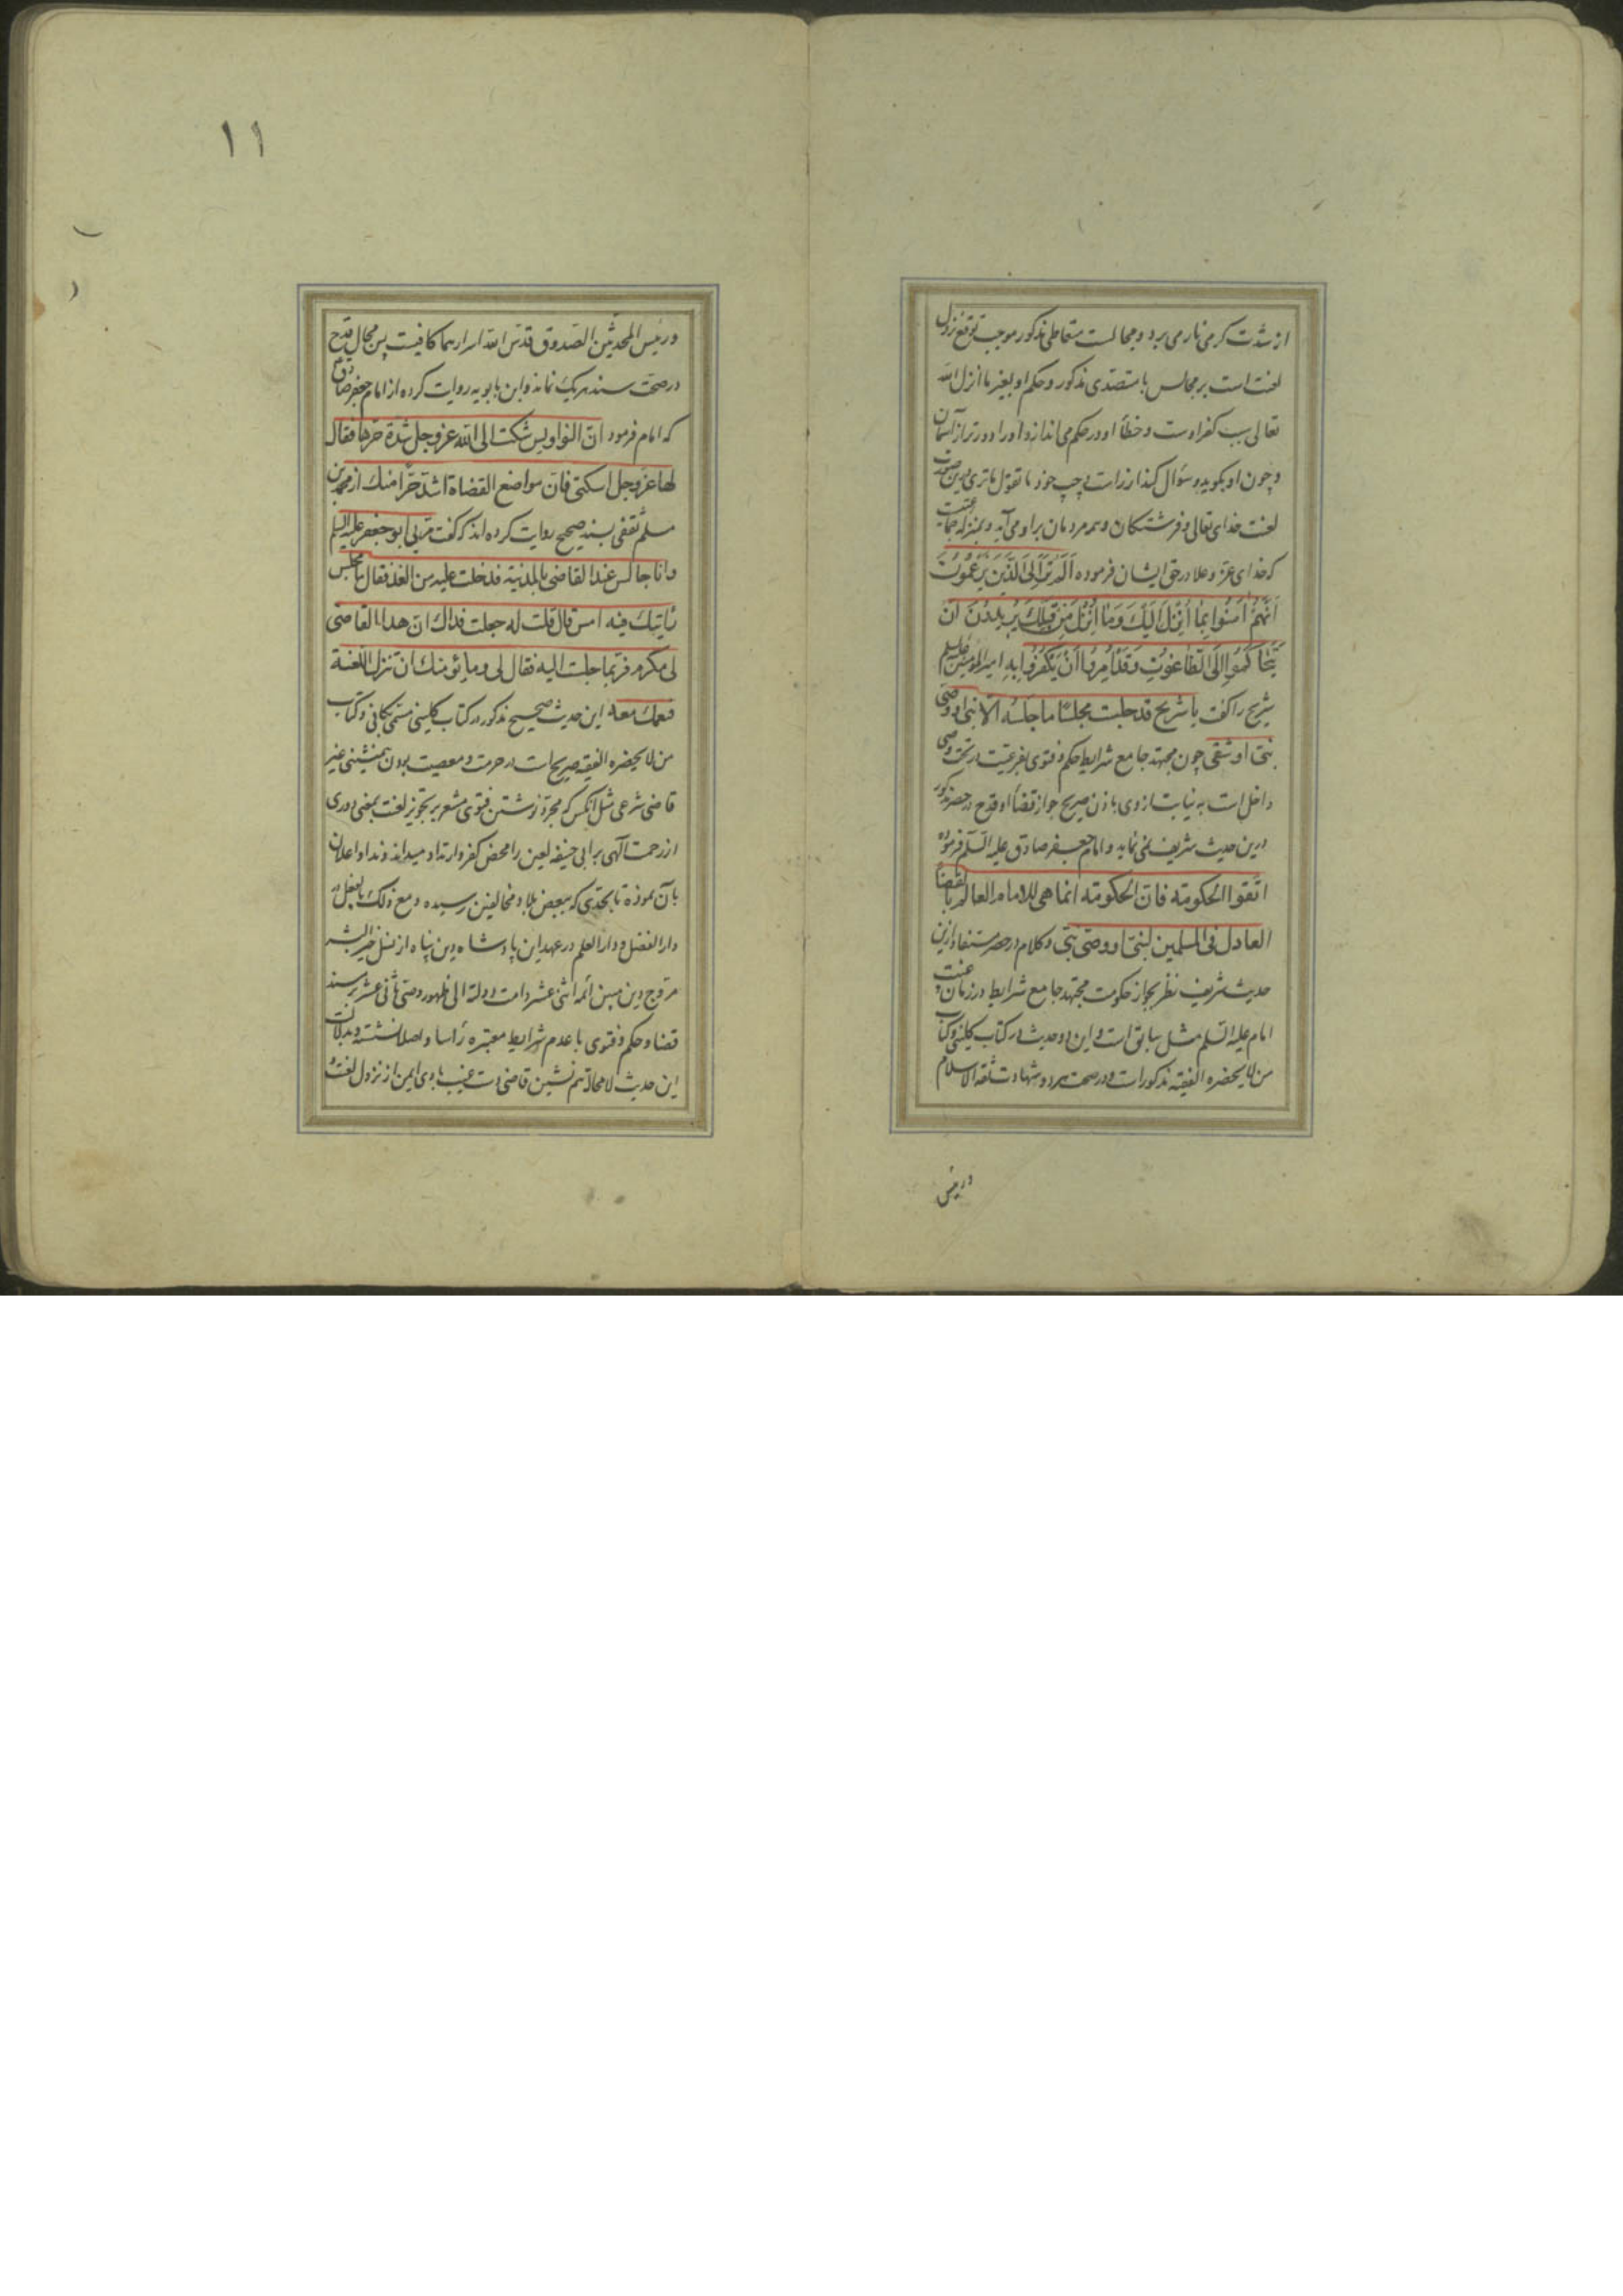 از شدت گرمی نار می برد و مجالست متعاطی مذکور موجب توقع نزول
لعنت است بر مجالس با متصدی مذکور و حکم او بغیر ما انزل الله
تعالی سبب کفر اوست و خطأ او در حکم می اندازد او را دورتر از آسمان
و چون او بگوید و سؤال کند از راست و چپ خود ما تقول ما تری درین صورت
لعنت خدای تعالی و فرشتگان و همه مردمان بر او می آید و بمنزله جماعتیست
که خدای عز و علا در حق ایشان فرموده اَلَم تَرَ اِلَی الَّذینَ یَزعُمُونَ
اَنَّهُم اٰمَنُوا بِمٰا اُنزِلَ اِلَیكَ وَمٰا اُنزِلَ مِن قَبلِكَ یُرِیدُونَ اَن
یَتَحٰاكَمُوا اِلَی الطّٰاغُوتِ وَقَد اُمِرُوا اَن یَكفُرُوا بِهِ امیر المومنین علیه السلم
شریح را گفت یا شریح قد جلست مجلسًا ما جلسه الا نبی او وصی
نبی او شقی چون مجتهد جامع شرایط حکم و فتوی بفرعیت در تحت وصی
داخل است به نیابت از وی باذن صریح جواز قضأ او قدح در حصر مذکور
درین حدیث شریف نمی نماید و امام جعفر صادق علیه السلم فرموده
اتقوا الحكومة فان الحكومة انما هی للامام العالم بالقضأ
العادل فی المسلمین لنبی او وصی نبی و کلام در حصر مستفاد ازین
حدیث شریف نظر بجواز حکومت مجتهد جامع شرایط در زمان غیبت
امام علیه السلم مثل سابق است و این دو حدیث در کتاب کلینی و کتاب
من لا یحضره الفقیه مذکور است و در صحت هر دو شهادت ثقة الاسلام
و رئیس
۱۱
و رئیس المحدثین الصدوق قدس الله اسرارهما کافیست پس مجال قدح
در صحت سند هر یک نماند و ابن بابویه روایت کرده از امام جعفر صادق
که امام فرمود ان النواویس شكت الی الله عز و جل شدة حرها فقال
لها عز و جل اسكتی فان مواضع القضاة اشد حرًا منك از محمد بن
مسلم ثقفی بسند صحیح روایت کرده اند که گفت مر بی ابو جعفر علیه السلم
و انا جالس عند القاضی بالمدینة فدخلت علیه من الغد فقال ما مجلس
رأیتك فیه امس قال قلت له جعلت فداك ان هذا القاضی
لی مكرم فربما جلست الیه فقال لی و ما یؤمنك ان تنزل اللعنة
فتعمك معه این حدیث صحیح مذکور در کتاب کلینی مسمی بکافی و کتاب
من لا یحضره الفقیه صریح است در حرمت و معصیت بودن همنشینی غیر
قاضی شرعی مثل آنکس که مجرد نوشتن فتوی مشعر بر تجویز لعنت بمعنی دوری
از رحمت آلهی بر ابی حنیفه لعین را محض کفر و ارتداد میداند و ندا و اعلان
بآن نموده تا بحدی که ببعض بلاد مخالفین رسیده و مع ذلک بالفعل در
دار الفضل و دار العلم در عهد این پادشاه دین پناه از نسل خیر البشر
مروج دین مبین ائمه اثنی عشر دامت دولته الی ظهور وصی ثانی عشر بر مسند
قضا و حکم و فتوی با عدم شرایط معتبره رأسا و اصلا نشسته و بدلالت
این حدیث لا محاله هم نشین قاضی با وی ایمن از نزول لعنت